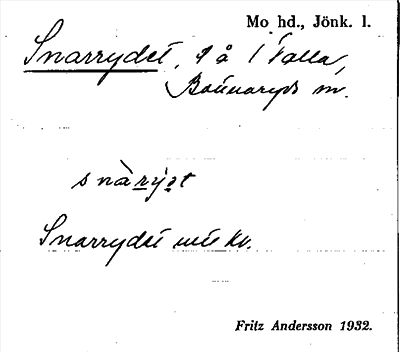 Mo hd., Jönk. l.
Snarrydet, på 1 Valla,
Bannaryds sn.
snàrýət
Snarrydet utt kv.
Fritz Andersson 1932.